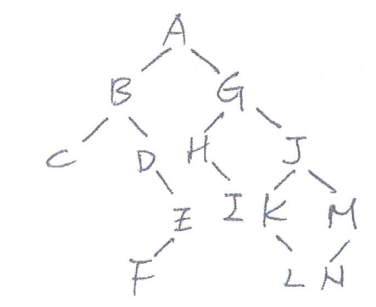 A
B G
C D H J
E I K M
F L N